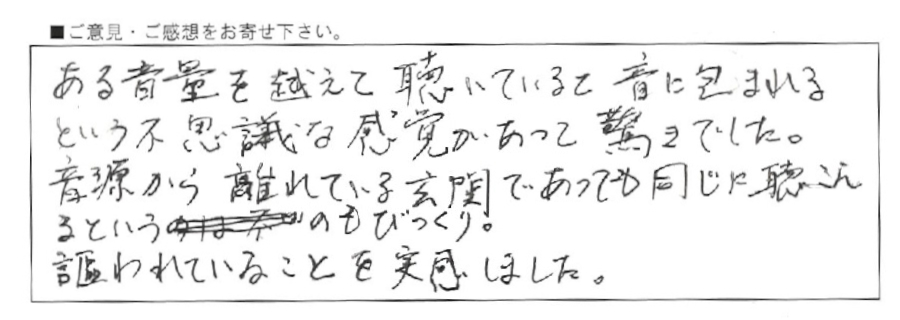 ■ご意見・ご感想をお寄せ下さい。
ある音量を越えて聴いていると音に包まれる
という不思議な感覚があって驚きでした。
音源から離れている玄関であっても同じに聴こえ
るというのもびっくり。
謳われていることを実感しました。